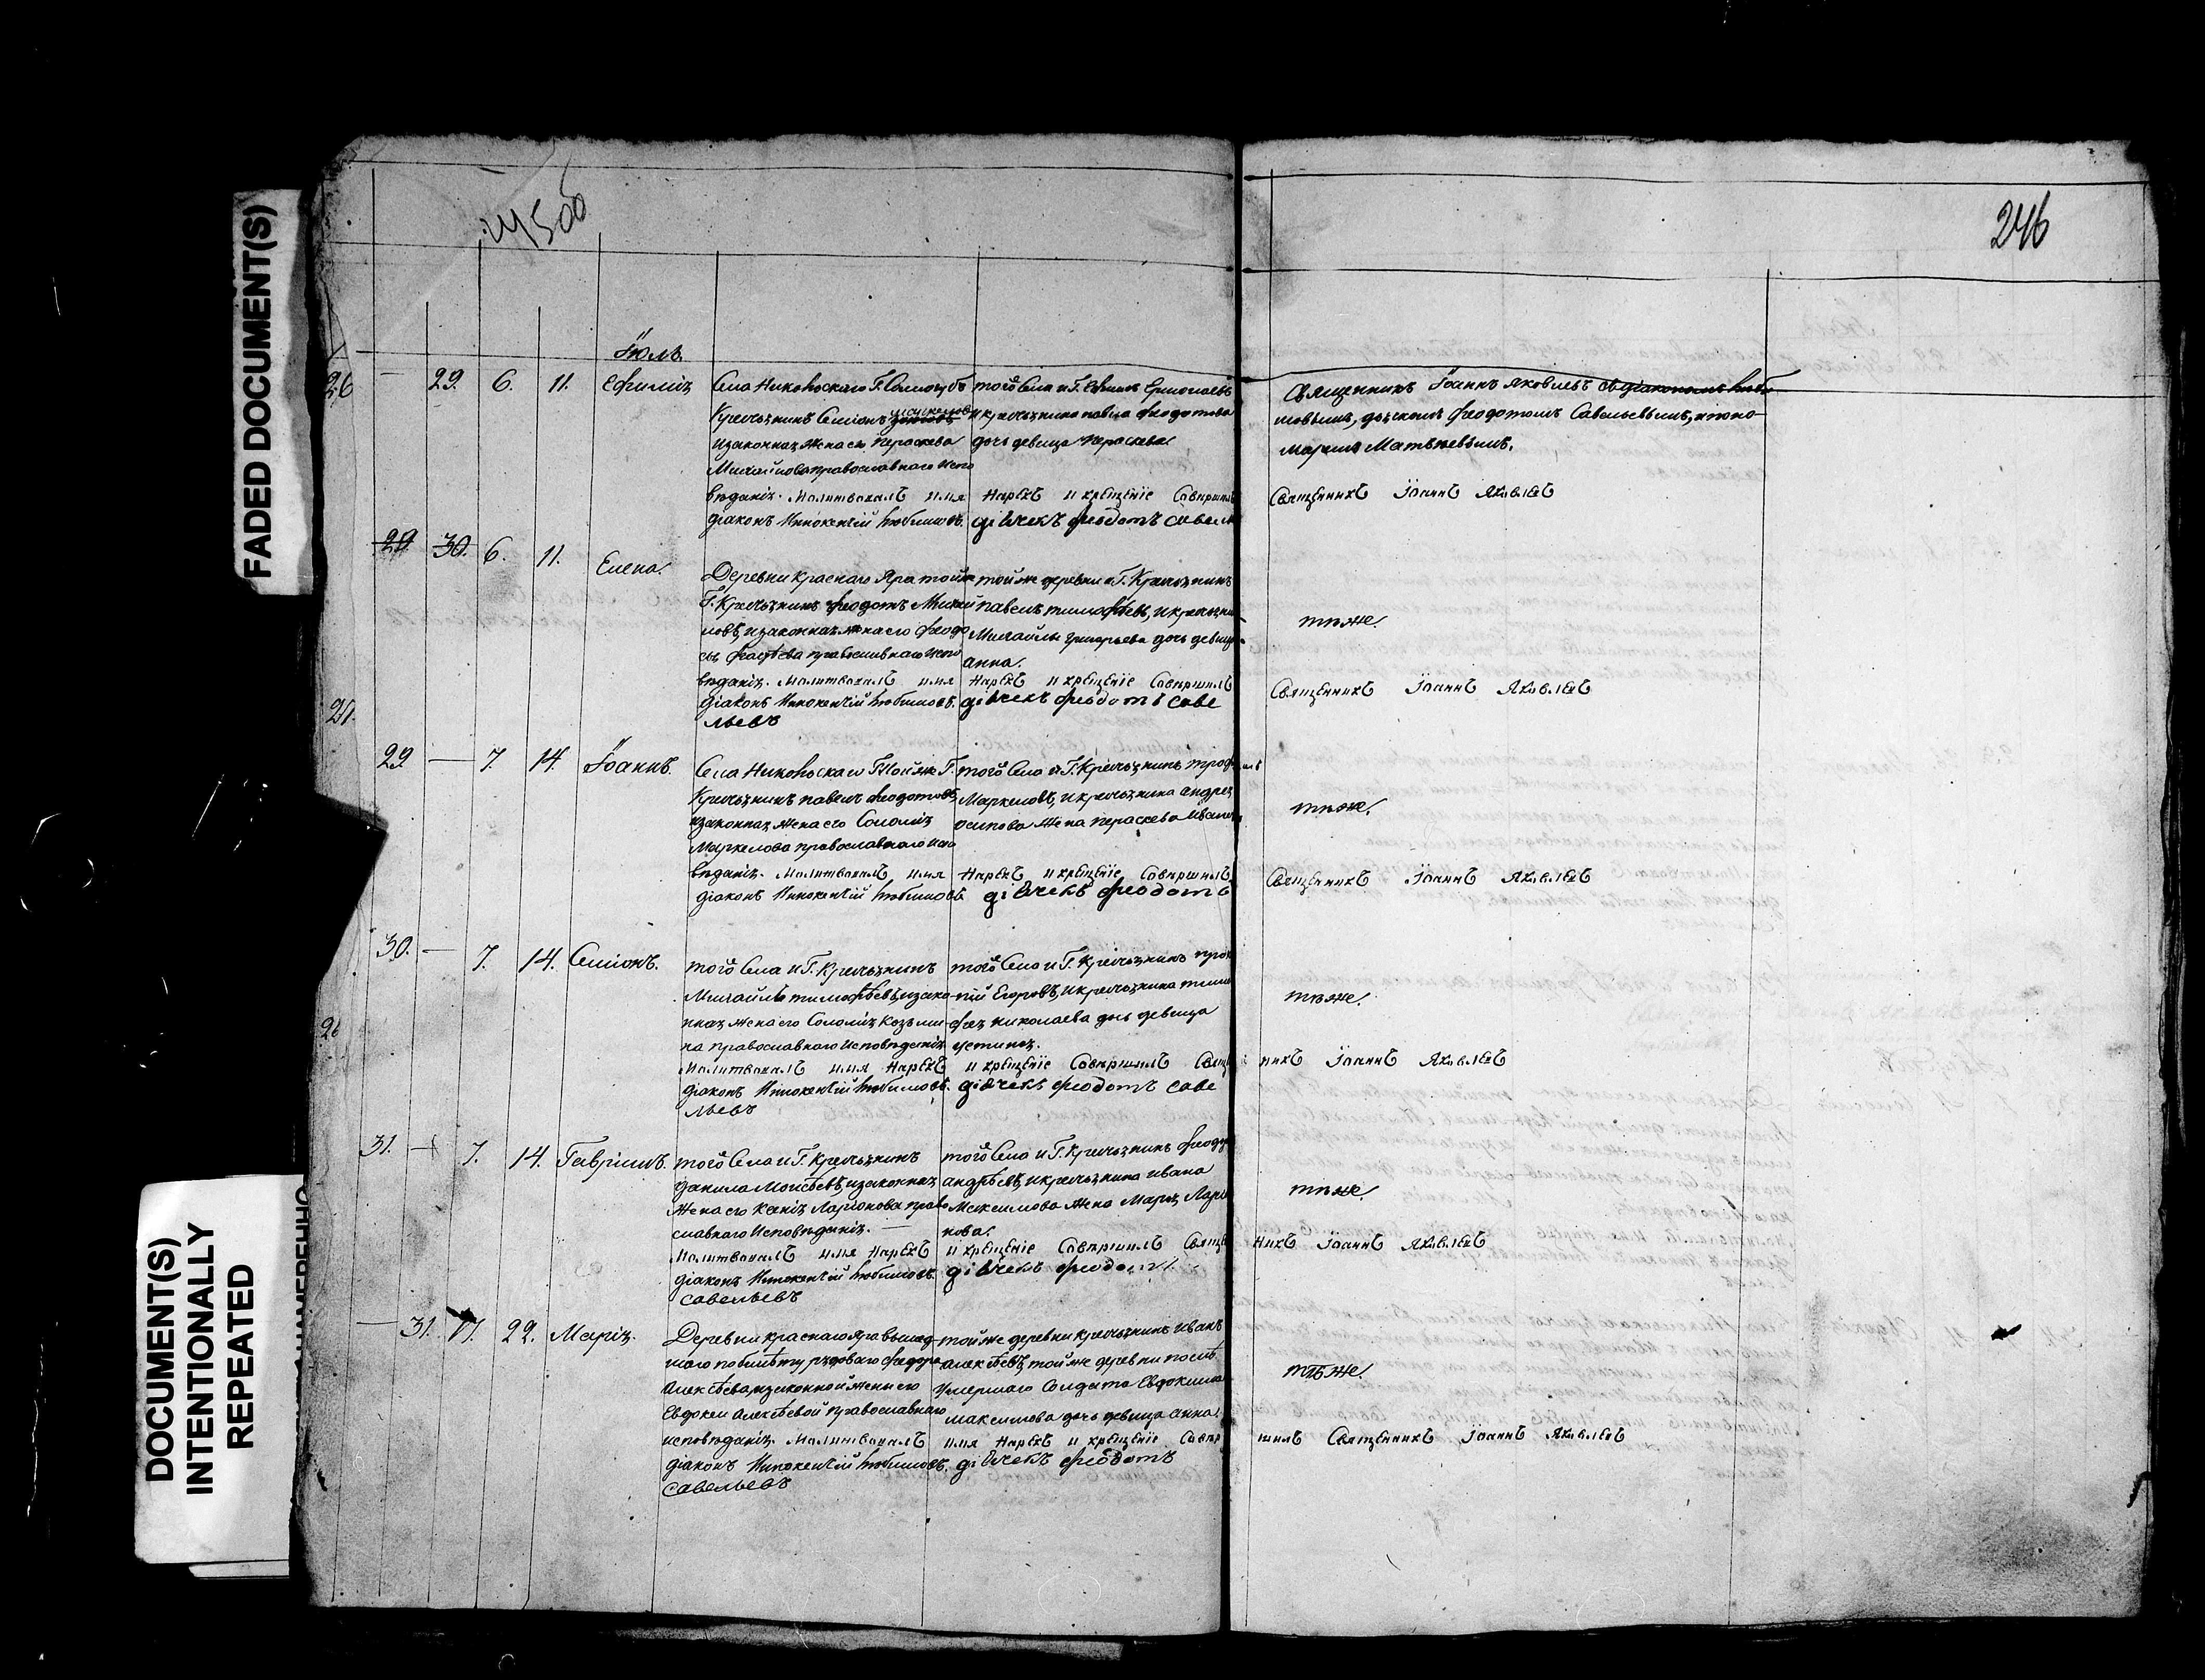 FADED DOCUMENT(S)
DOCUMENT(S)
INTENTIONALLY
REPEATED
245об
246
Іюль
26 — 29. 6. 11. Ефимія
Села Никольскаго Г.
Крестьянинъ Семіонъ
изаконная жена его Пераскева
Михайлова православнаго испо
веданія. Молитвовалъ имя
діаконъ Иннокентій Любимовъ.
того Села и Г. Ефимъ Ермолаевъ
и крестьянина павла феодотова
дочь девица Пераскева
Нарекъ и крещеніе Совершилъ
дьячекъ феодотъ савел
Священникъ Іоаннъ Яковлевъ съ діакономъ Люби
мовымъ, дьячкомъ феодотомъ Савельевымъ, и поно
марем Матвеевымъ.
Священникъ Іоаннъ Яковлевъ
29. 30. 6. 11. Елена.
Деревни краснаго Яра той же
Г. Крестьянинъ феодотъ Михай
ловъ, изаконная жена его феодо
православнаго испо
веданія. Молитвовалъ имя
діаконъ Иннокентій Любимовъ.
той же деревни и Г. Крестьянинъ
павелъ тимофѣевъ, и крестьяни
Михайлы григорьева дочь девица
анна.
Нарекъ и крещеніе Совершилъ
дьячекъ феодотъ саве
льевъ
тѣже.
Священникъ Іоаннъ Яковлевъ
29 — 7 14. Іоаннъ.
Села Никольскаго Той же Г.
Крестьянинъ павелъ феодотовъ,
изаконная жена его Соломія
Маркелова православнаго испо
веданія. Молитвовалъ имя
діаконъ Иннокентій Любимовъ
того Села и Г. Крестьянинъ троф
Маркеловъ, и крестьянина андрея
осипова жена пераскева Иванов
Нарекъ и крещеніе Совершилъ
дьячекъ феодотъ
тѣже.
Священникъ Іоаннъ Яковлевъ
30. — 7. 14. Семіонъ.
того Села и Г. Крестьянинъ
Михайло тимофѣевъ, изако
нная жена его Соломія Козьми
на православнаго исповеданія
Молитвовалъ имя Нарекъ
діаконъ Иннокентій Любимовъ.
того Села и Г. Крестьянинъ прок
пій Егоровъ, и крестьянина тимо
фея николаева дочь девица
устинія.
и крещеніе Совершилъ Свяще
дьячекъ феодотъ саве
льевъ
тѣже.
никъ Іоаннъ Яковлевъ
31. — 7. 14. Гавріилъ.
того Села и Г. Крестьянинъ
данила Моисѣевъ, изаконная
жена его ксенія Ларіонова право
славнаго Исповеданія. —
Молитвовалъ имя Нарекъ
діаконъ Иннокентій Любимовъ.
савельевъ
того Села и Г. Крестьянинъ феодо
андрѣевъ, и крестьянина ивана
Максимова жена Марія Ларіо
нова.
и крещеніе Совершилъ Свяще
дьячекъ феодотъ
тѣже.
никъ Іоаннъ Яковлевъ
— 31. 17. 22. Марія.
Деревни краснаго Яра вышед
шаго побилѣту рядоваго федора
Алексѣева, изаконной жены его
Евдокеи Алексѣевой православнаго
исповеданія. Молитвовалъ
діаконъ Иннокентій Любимовъ.
савельевъ
той же деревни крестьянинъ Иванъ
алексѣевъ, той же деревни послѣ
умершаго Солдата Евдокима
максимова дочь девица анна.
имя Нарекъ и крещеніе Совер
дьячекъ феодотъ
тѣже.
шилъ Священникъ Іоаннъ Яковлевъ